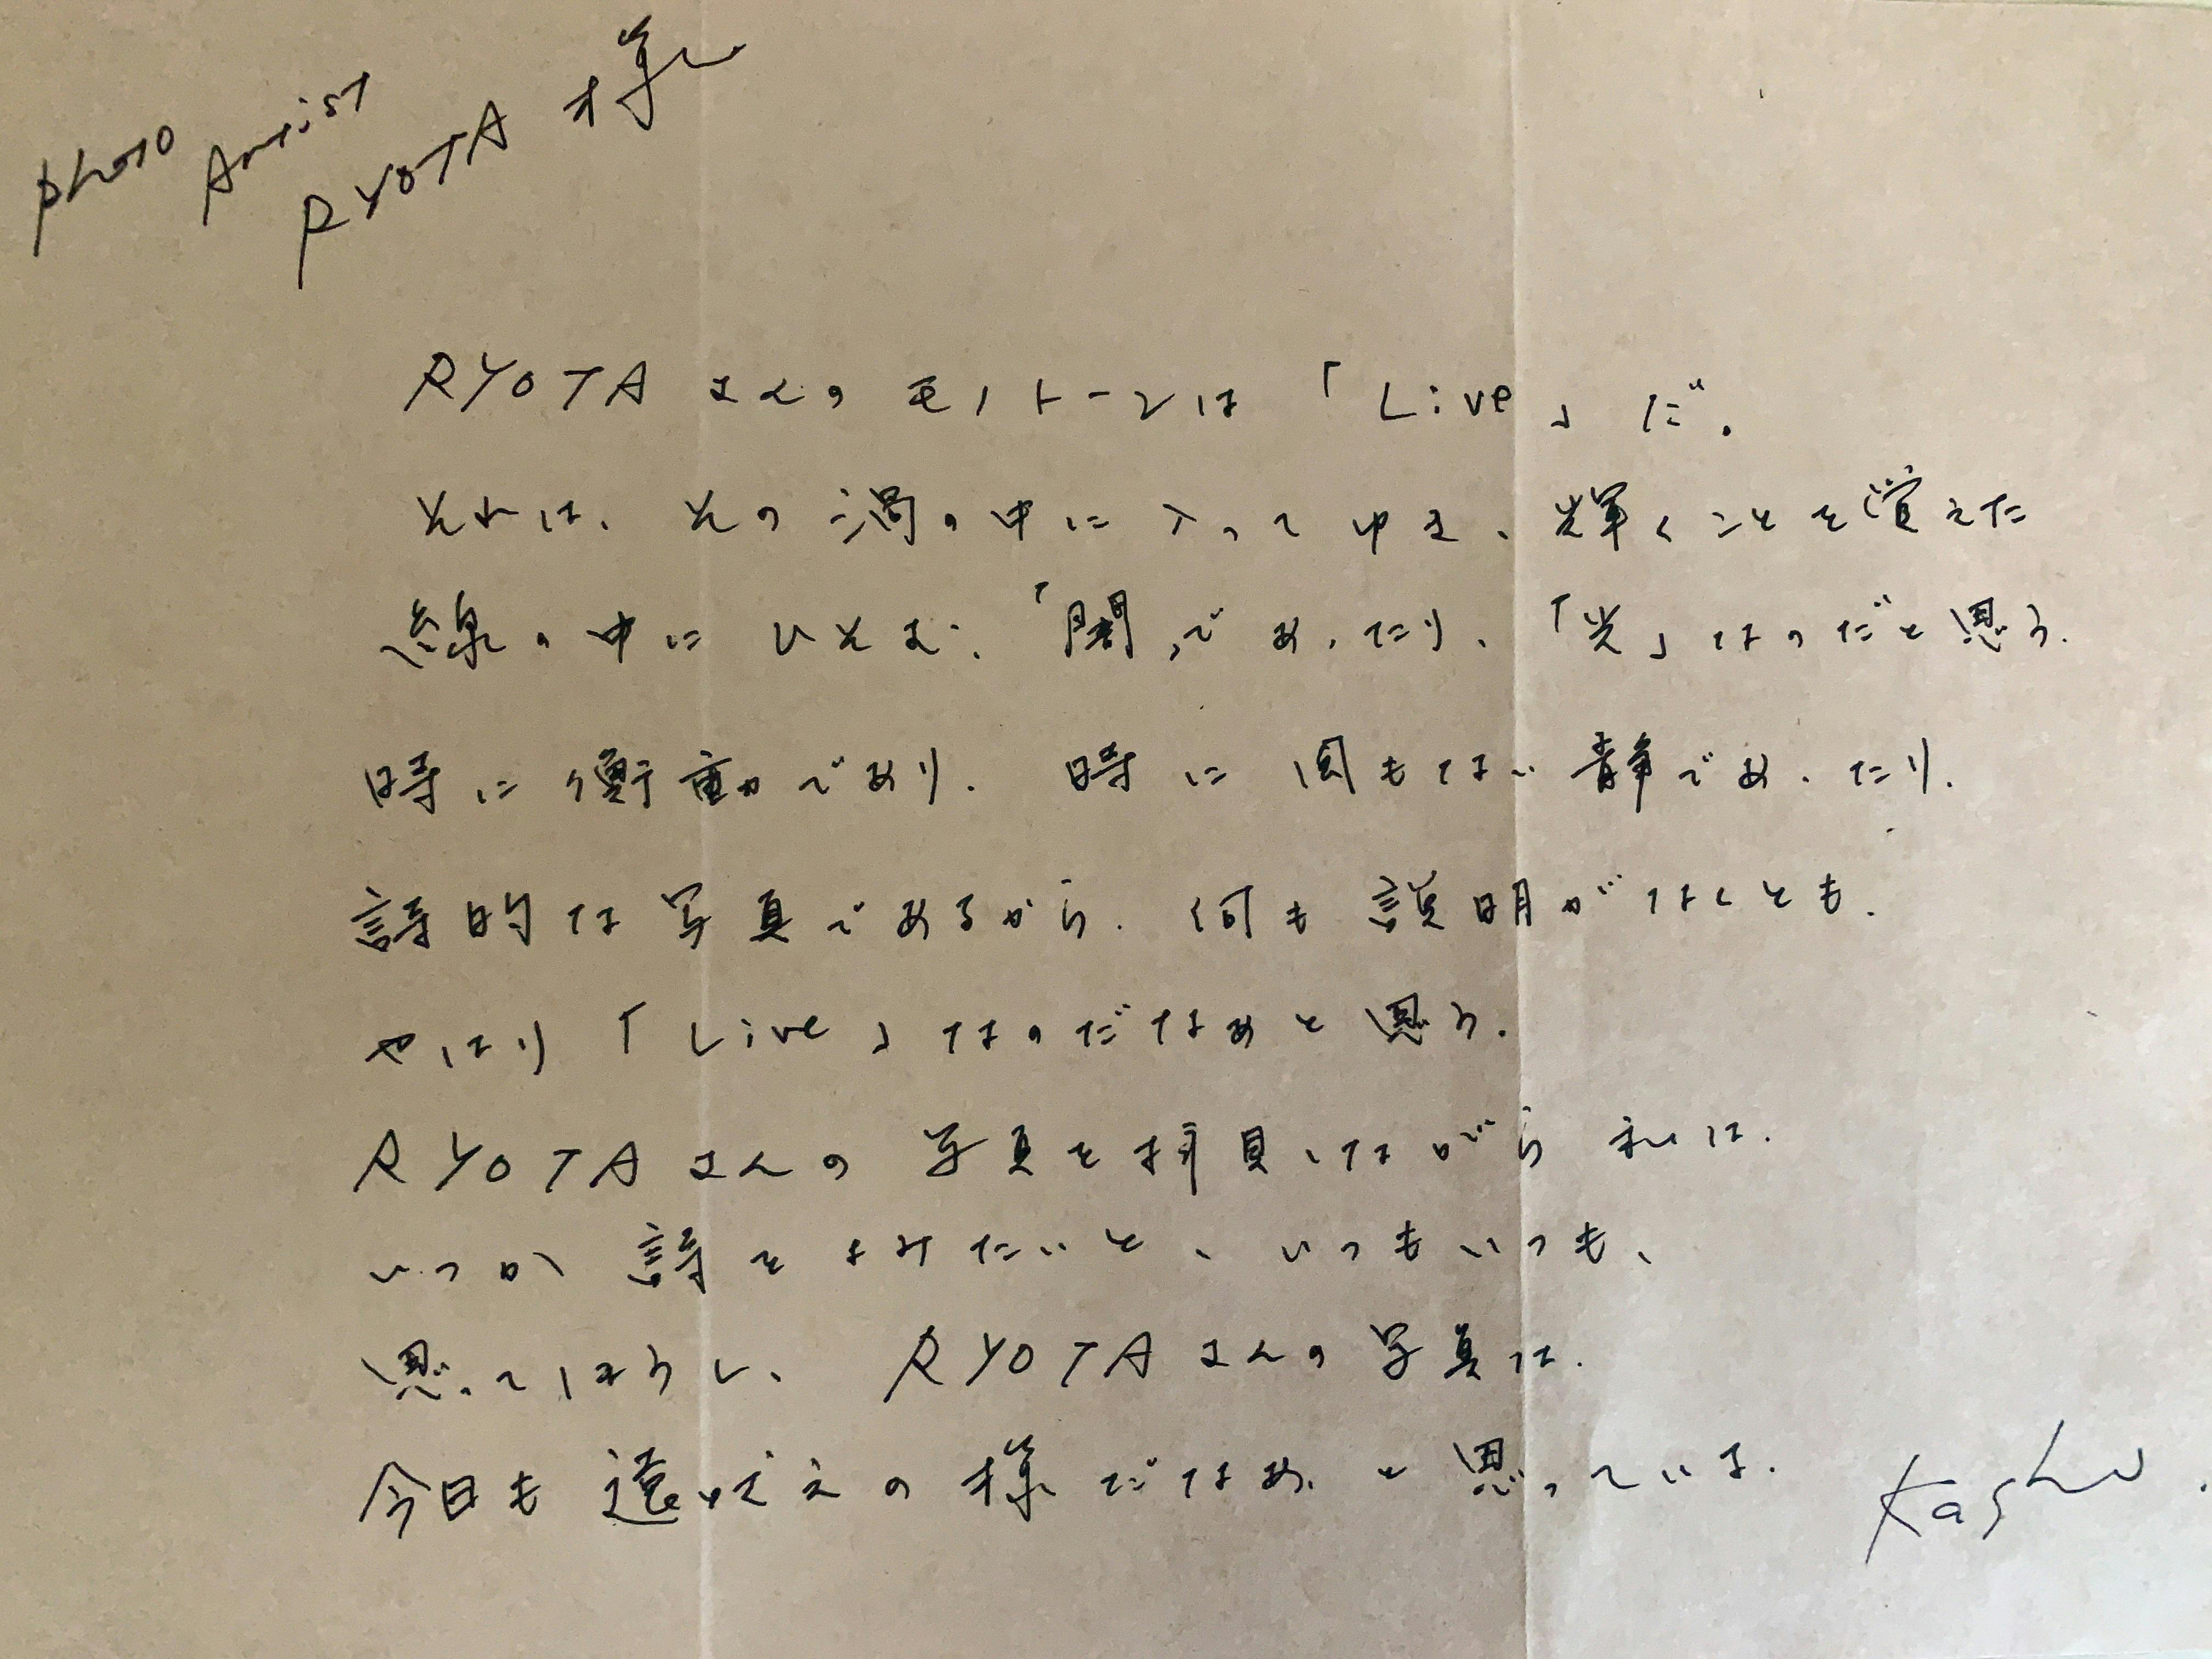 photo Artist
RYOTA 様
RYOTA さんの モノトーンは「Live」だ。
それは、その渦の中に入ってゆき、輝くことを覚えた
線の中に ひそむ、「闇」であったり、「光」なのだと思う。
時に衝動であり、時に何もない静であったり、
詩的な写真であるから、何も説明がなくとも、
やはり「Live」なのだなぁと思う。
RYOTA さんの 写真を拝見しながら 私は、
いつか 詩をよみたいと、いつもいつも、
思ってしまうし、RYOTA さんの写真は、
今日も 遠吠えの様だなぁ、と思っている。
Kashu.